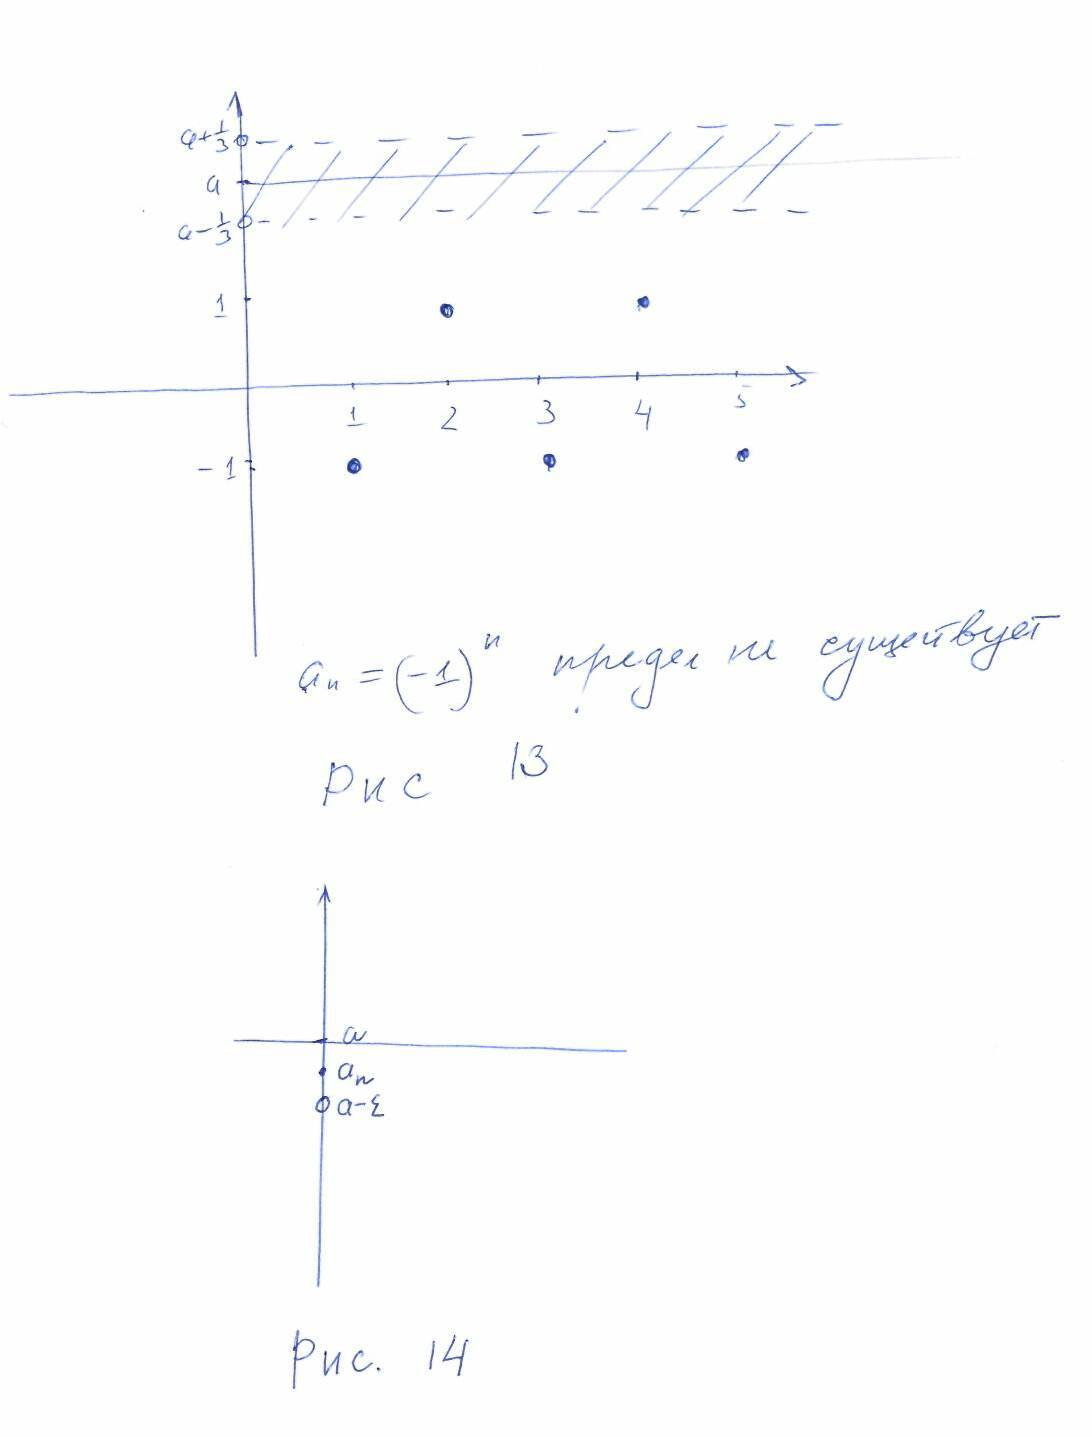 a+1/3
a
a-1/3
1
1 2 3 4 5
-1
aₙ = (-1)ⁿ предел не существует
Рис 13
a
aₙ
a-ε
Рис. 14